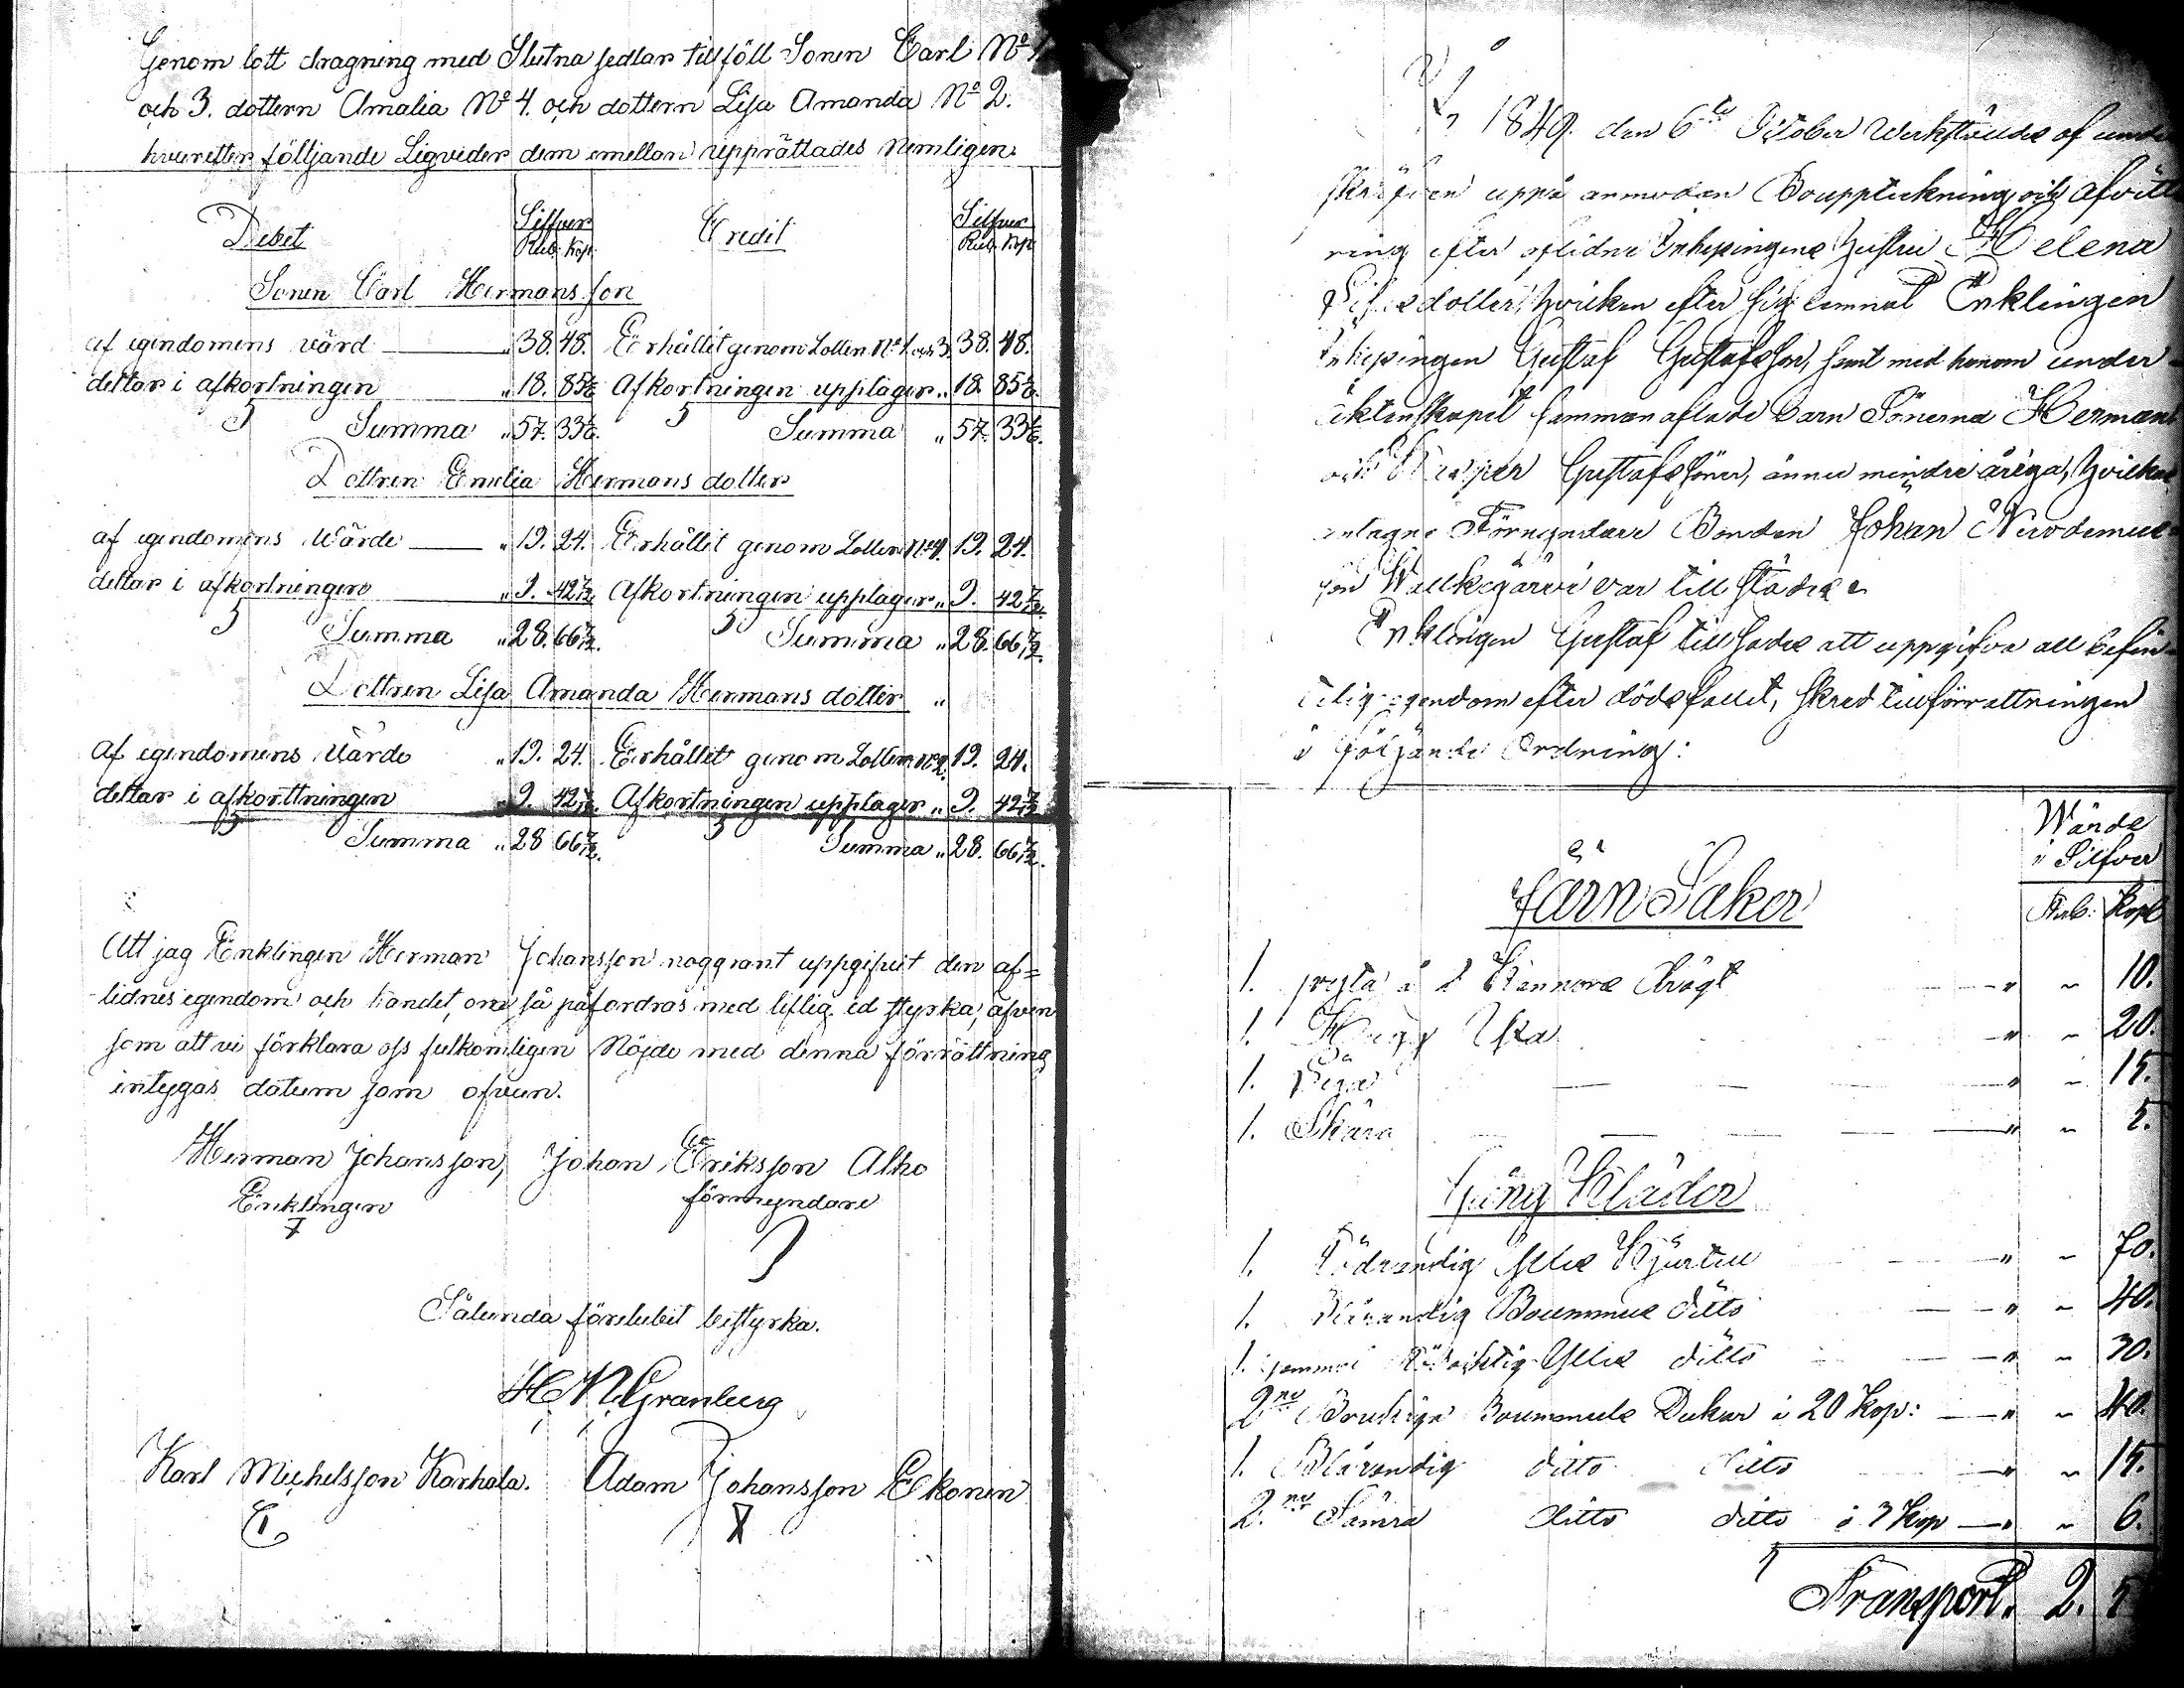 Genom lott dragning med Slutna sedlar tillföll Sonen Carl No 1.
och 3. dottern Amalia No 4. och dottern Lisa Amanda No 2.
hvarefter följjande Liqvider dem emellan upprättades nemligen
Debet Silfver Credit Silfver
Rub. Kop. Rub. Kop.
Sonen Carl Hermansson
af egendomens värd " 38. 48. Erhållit genom Lotten No 1. och 3. 38. 48.
deltar i afkortningen " 18. 85 5/6 Afkortningen upptager " 18. 85 5/6.
Summa " 57. 33 5/6. Summa " 57. 33 5/6.
Dottren Emelia Hermans dotter
af egendomens Wärde " 19. 24. Erhållit genom Lotten No 4. 19. 24.
deltar i afkortningen " 9. 42 7/12 Afkortningen upptager " 9. 42 7/12.
Summa " 28. 66 7/12. Summa " 28. 66 7/12.
Dottren Lisa Amanda Hermans dotter "
af egendomens Värde " 19. 24. Erhållit genom Lotten No 2. 19. 24.
deltar i afkorttningen " 9. 42 7/12. Afkortningen upptager " 9. 42 7/12
Summa " 28 66 7/12. Summa " 28. 66 7/12.
Att jag Enklingen Herman Johansson noggrant uppgifvit den af=
lidnes egendom och kandet, om så påfordras med liflig ed styrka, äfven
som att vi förklara oss fulkomligen Nöjde med denna förrättning
intygas datum som ofvan.
Herman Johansson, Johan Eriksson Alho
Enklingen förmyndare
Sålunda förelubit bestyrka.
H. N. Granberg
Karl Michelsson Karhola. Adam Johansson Ekonen
1849. den 6te October Werkstäldes af unde
uppå anmodan Bouppteckning och Afvitt
ring efter aflidne Inhysingens Hustru Helena
dotter, hvilken efter sig lemnat Enklingen
Inhysingen Gustaf Gustafsson, samt med honom under
äktenskapet sammanaflade Barn Sönerna Herman
och Gustafs Söner, ännu mindre åriga, hvilkas
antagne Förmyndare Bonden Johan Nicodemus
son var till städes
Enklingen Gustaf tillsades att uppgifva all befin
telig egendom efter dödsfallet, skred till förrättningen
i följjande Ordning:
Wärde
i Silfver
Järn Saker Rub: Kop:
1. gryta à 2 Kannors drägt " " 10.
1. Hugg Yxa " " 20.
1. " " 15.
1. Skära " " 5.
Gång Kläder
1. Rödrandig Ylle Kjortel " " 70.
1. Blårandig Boummuls ditto " " 40.
1. gammal Ylle ditto " " 30.
2ne Brukiga Boummuls Dukar à 20 Kop: " " 40.
1. Blårandig ditto ditto " " 15.
2.ne Sämra ditto ditto à 3 Kop " " 6.
Transport. 2. 5